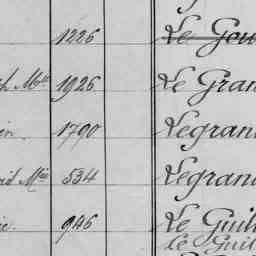 1226 Le Gou
h Mie 1926 Le Gran
in. 1790 Legran
id Mie 534 Legran
ie. 946 Le Guil
Le Guil